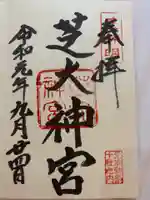 奉拝
芝大神宮
令和元年九月廿四日